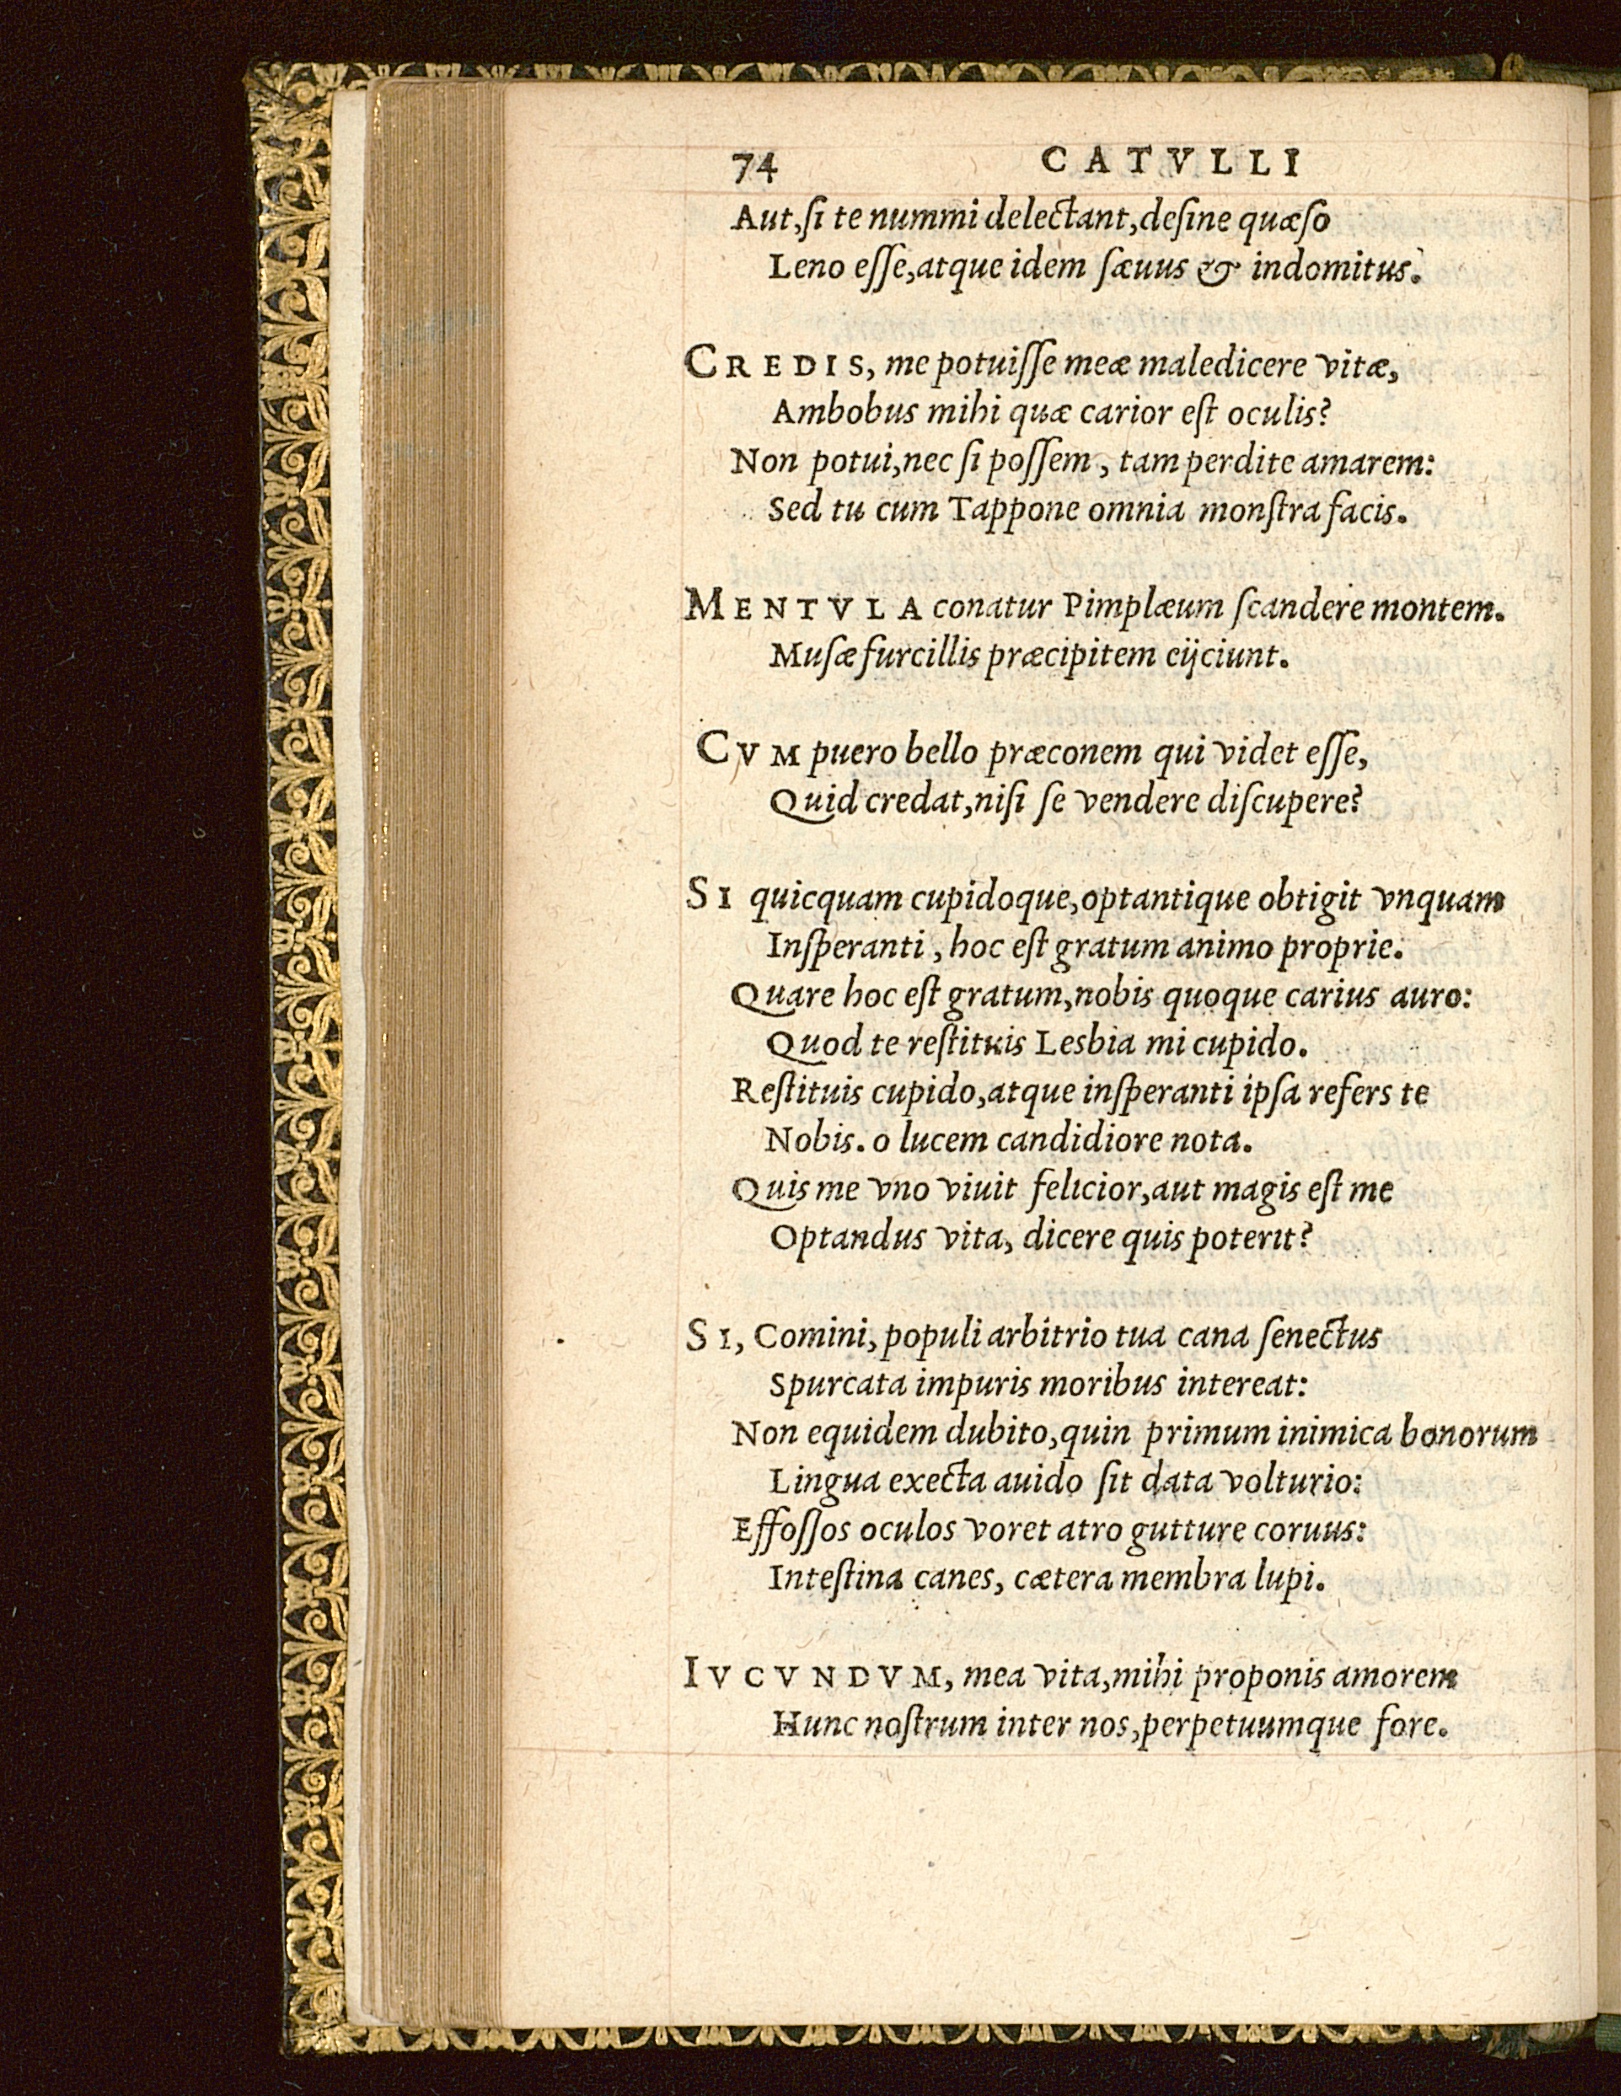 74 CATVLLI
Aut,ſi te nummi delectant,deſine quæſo
Leno eſſe,atque idem ſæuus & indomitus.
CREDIS, me potuiſſe meæ maledicere vitæ,
Ambobus mihi quæ carior eſt oculis?
Non potui,nec ſi poſſem, tam perdite amarem:
Sed tu cum Tappone omnia monſtra facis.
MENTVLA conatur Pimplæum ſcandere montem.
Muſæ furcillis præcipitem eijciunt.
CVM puero bello præconem qui videt eſſe,
Quid credat,niſi ſe vendere diſcupere?
SI quicquam cupidoque,optantique obtigit vnquam
Inſperanti, hoc eſt gratum animo proprie.
Quare hoc eſt gratum,nobis quoque carius auro:
Quod te reſtituis Lesbia mi cupido.
Reſtituis cupido,atque inſperanti ipſa refers te
Nobis. o lucem candidiore nota.
Quis me vno viuit felicior,aut magis eſt me
Optandus vita, dicere quis poterit?
SI, Comini, populi arbitrio tua cana ſenectus
Spurcata impuris moribus intereat:
Non equidem dubito,quin primum inimica bonorum
Lingua execta auido ſit data volturio:
Effoſſos oculos voret atro gutture coruus:
Inteſtina canes, cætera membra lupi.
IVCVNDVM, mea vita,mihi proponis amorem
Hunc noſtrum inter nos,perpetuumque fore.